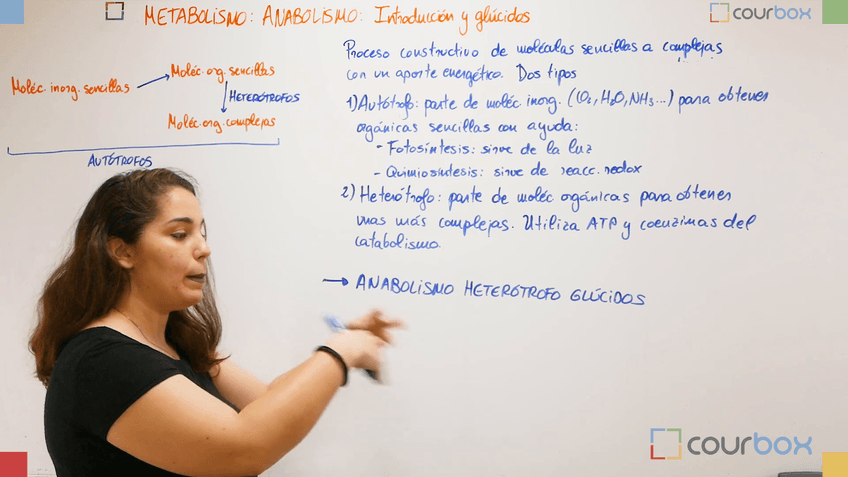 METABOLISMO: ANABOLISMO: Introducción y glúcidos
courbox
Moléc. inorg. sencillas
Moléc. org. sencillas
HETERÓTROFOS
Moléc. org. complejas
AUTÓTROFOS
Proceso constructivo de moléculas sencillas a complejas
con un aporte energético. Dos tipos
1) Autótrofo: parte de moléc. inorg. (CO₂, H₂O, NH₃...) para obtener
orgánicas sencillas con ayuda:
- Fotosíntesis: sirve de la luz
- Quimiosíntesis: sirve de reacc. redox
2) Heterótrofo: parte de moléc. orgánicas para obtener
unas más complejas. Utiliza ATP y coenzimas del
catabolismo.
→ ANABOLISMO HETERÓTROFO GLÚCIDOS
courbox